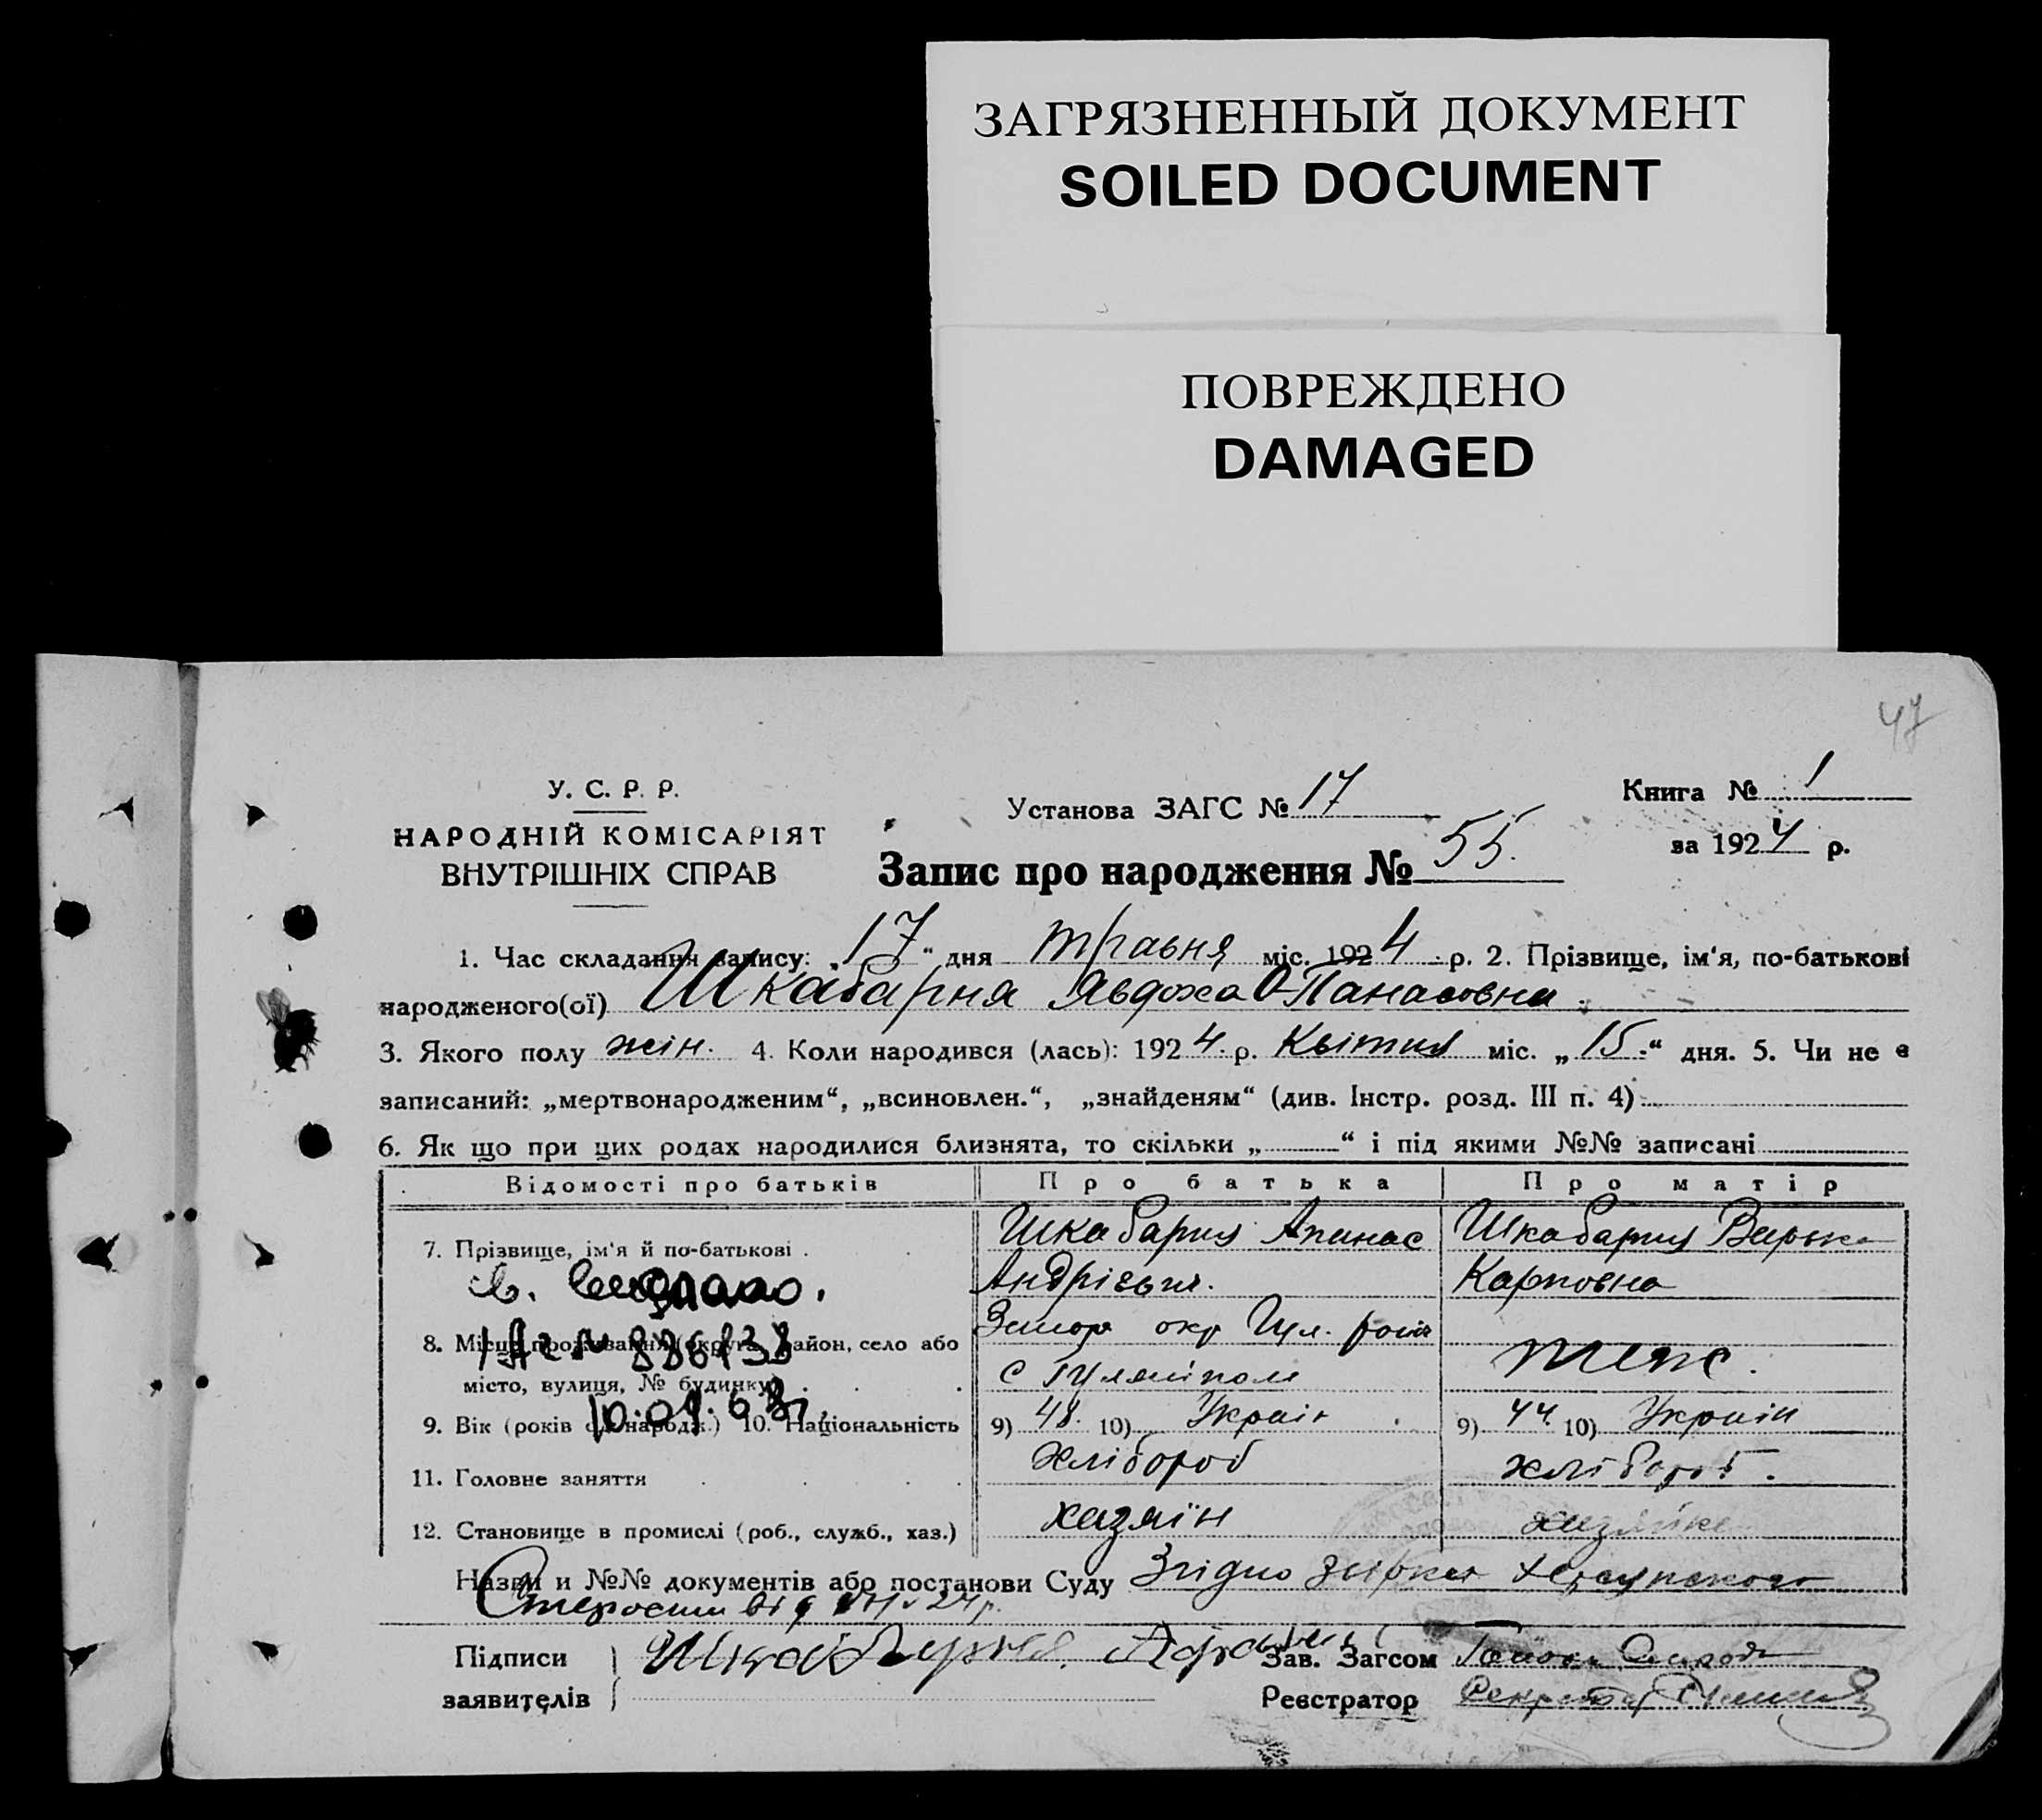 ЗАГРЯЗНЕННЫЙ ДОКУМЕНТ
SOILED DOCUMENT
ПОВРЕЖДЕНО
DAMAGED
47
У. С. Р. Р.
НАРОДНІЙ КОМІСАРІЯТ
ВНУТРІШНІХ СПРАВ
Установа ЗАГС № 17
Запис про народження № 55.
Книга № 1
за 1924 р.
1. Час складання запису: „17“ дня травня міс. 1924 р. 2. Прізвище, ім‘я, по-батькові
народженого(ої) Шкабарня Явдоха О-Панасовна.
3. Якого полу жін. 4. Коли народився (лась): 1924. р. Квітня міс. „15.“ дня. 5. Чи не є
записаний: „мертвонародженим“, „всиновлен.“, „знайденям“ (див. Інстр. розд. III п. 4)
6. Як що при цих родах народилися близнята, то скільки „ “ і під якими №№ записані
Відомості про батьків Про батька Про матір
7. Прізвище, ім‘я й по-батькові . Шкабарня Апанас Шкабарня Варька
Андрієвич. Карповна
8. Місце проживання (округа, район, село або Запор окр Гул. район
місто, вулиця, № будинку) с Гуляйполе теж.
886138
10.09.68
9. Вік (років од народж.) 10. Національність 9) 48. 10) Украін 9) 44. 10) Украін
11. Головне заняття хлібороб хлібороб.
12. Становище в промислі (роб., служб., хаз.) хазяїн хазяйка
Назви и №№ документів або постанови Суду Згідно
Підписи
заявителів
Шкабарня.
Зав. Загсом
Реєстратор Секретар